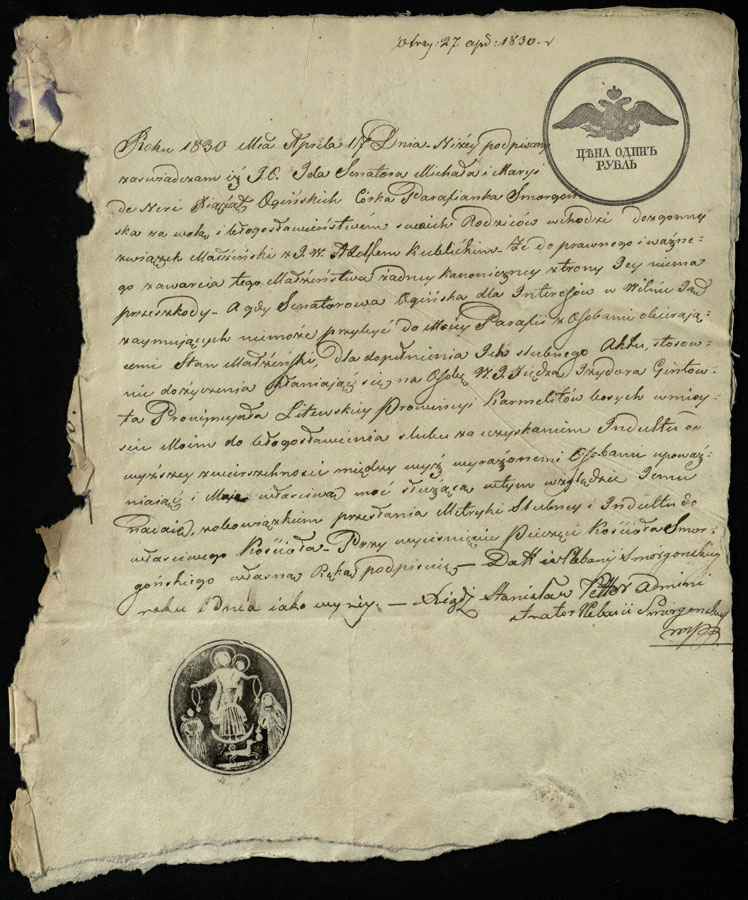 Otrzy: 27. apr: 1830. r
ЦѢНА ОДИНЪ
РУБЛЬ
Roku 1830 Mca Aprila 17 Dnia. Niżey podpisany
zaświadczam iż J.O. Ida Senatora Michała i Maryi
de Neri Xiążąt Ogińskich Córka Parafianka Smorgoń-
ska za wolą i błogosławieństwem swoich Rodziców wchodzi dozgonny
związek Małżeński z J.W. Adolfem Kublickim. Że do prawnego i ważne-
go zawarcia tego Małżeństwa żadney kanoniczney z strony Jey niema
przeszkody. A gdy Senatorowa Ogińska dla Interesów w Wilnie Ją
zaymujących niemoże przybyć do Moiey Parafii z Osobami obierają-
cemi Stan Małżeński, dla dopełnienia Ich ślubnego Aktu, stosow-
nie do życzenia skłaniając się na Osobę W.J. Xiędza Izydora Gintow-
ta Prowincyała Litewskiey Prowincyi Karmelitów bosych w miey-
scu Moim do błogosławienia ślubu za uzyskaniem Indultu od
wyższey zwierzchności między wyż wyrażonemi Osobami upoważ-
niaiąc i Moię właściwą moc służącą w tym względzie Jemu
nadaię, z obowiązkiem przesłania Metryki Slubney i Indultu do
właściwego Kościoła. Przy wyciśnięciu Pieczęci Kościoła Smor-
gońskiego własną Ręką podpisuię. Datt w Plebanij Smorgońskiey
roku i dnia iako wyżey. Xiądz Stanisław Admini
strator Plebanii Smorgońskiey
mpp